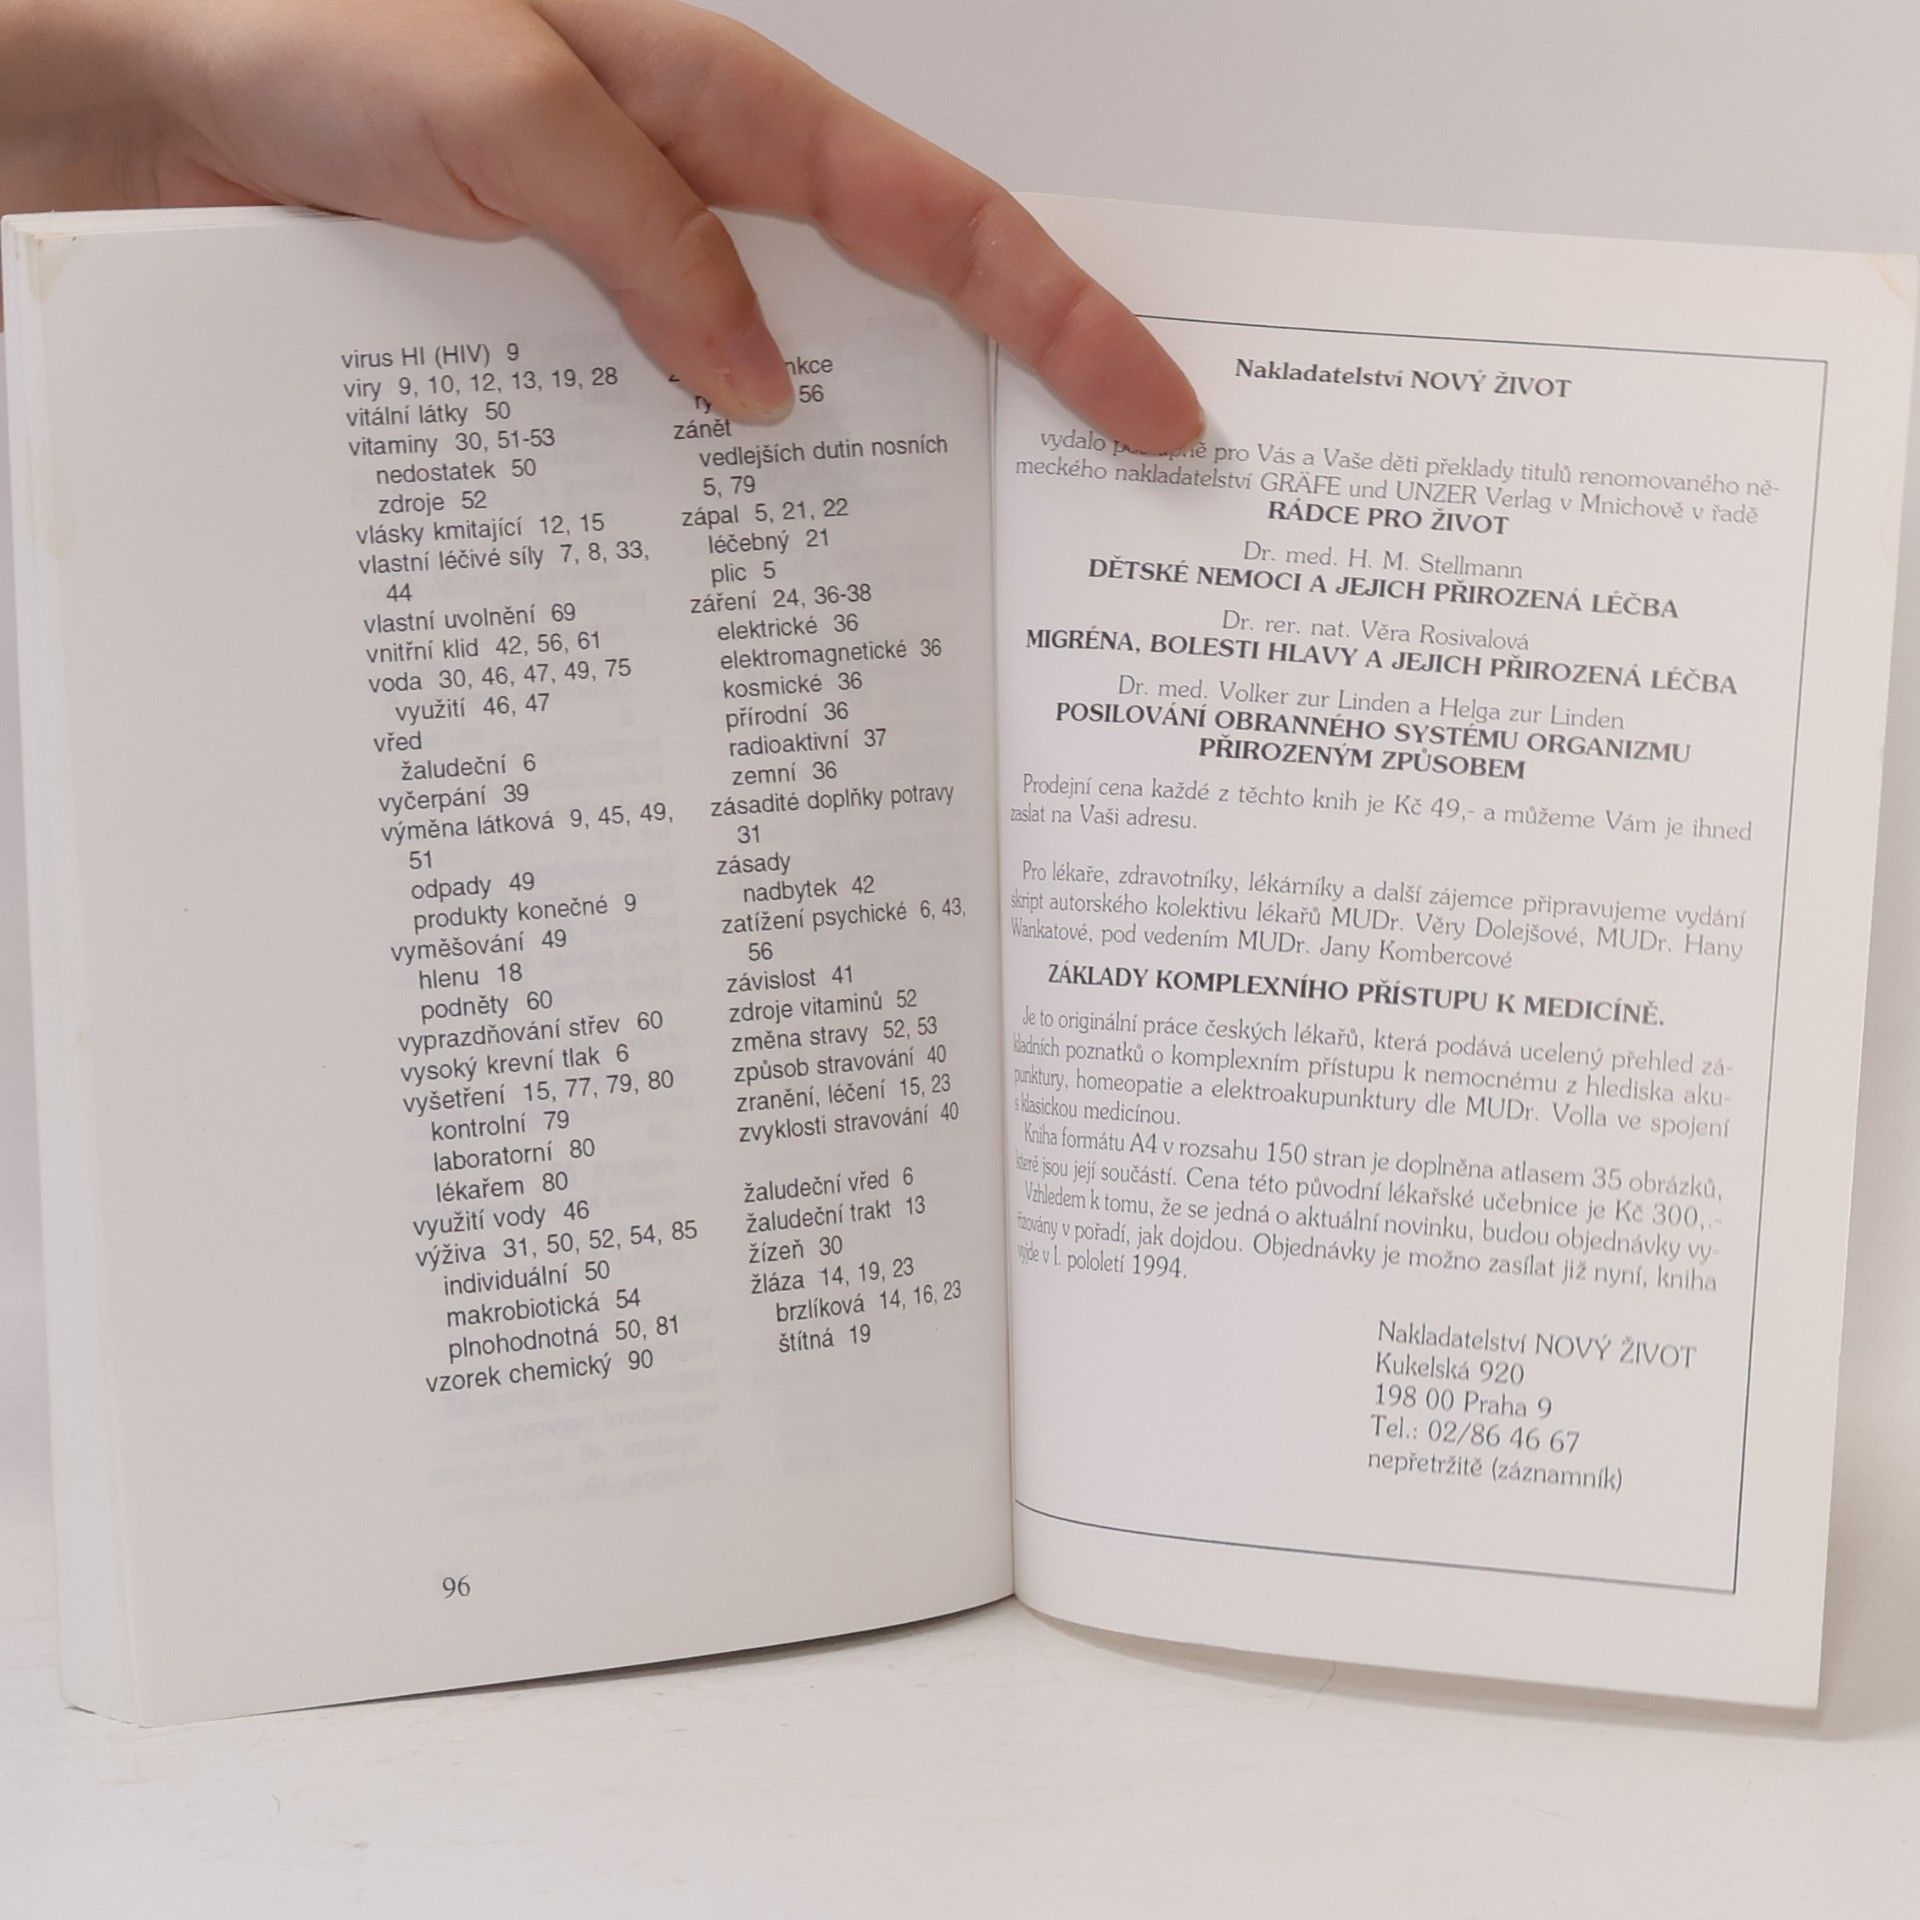 virus HI (HIV) 9
viry 9, 10, 12, 13, 19, 28
vitální látky 50
vitaminy 30, 51-53
nedostatek 50
zdroje 52
vlásky kmitající 12, 15
vlastní léčivé síly 7, 8, 33,
44
vlastní uvolnění 69
vnitřní klid 42, 56, 61
voda 30, 46, 47, 49, 75
využití 46, 47
vřed
žaludeční 6
vyčerpání 39
výměna látková 9, 45, 49,
51
odpady 49
produkty konečné 9
vyměšování 49
hlenu 18
podněty 60
vyprazdňování střev 60
vysoký krevní tlak 6
vyšetření 15, 77, 79, 80
kontrolní 79
laboratorní 80
lékařem 80
využití vody 46
výživa 31, 50, 52, 54, 85
individuální 50
makrobiotická 54
plnohodnotná 50, 81
vzorek chemický 90
56
zánět
vedlejších dutin nosních
5, 79
zápal 5, 21, 22
léčebný 21
plic 5
záření 24, 36-38
elektrické 36
elektromagnetické 36
kosmické 36
přírodní 36
radioaktivní 37
zemní 36
zásadité doplňky potravy
31
zásady
nadbytek 42
zatížení psychické 6, 43,
56
závislost 41
zdroje vitaminů 52
změna stravy 52, 53
způsob stravování 40
zranění, léčení 15, 23
zvyklosti stravování 40
žaludeční vřed 6
žaludeční trakt 13
žízeň 30
žláza 14, 19, 23
brzlíková 14, 16, 23
štítná 19
96
Nakladatelství NOVÝ ŽIVOT
vydalo pro Vás a Vaše děti překlady titulů renomovaného ně-
meckého nakladatelství GRÄFE und UNZER Verlag v Mnichově v řadě
RÁDCE PRO ŽIVOT
Dr. med. H. M. Stellmann
DĚTSKÉ NEMOCI A JEJICH PŘIROZENÁ LÉČBA
Dr. rer. nat. Věra Rosivalová
MIGRÉNA, BOLESTI HLAVY A JEJICH PŘIROZENÁ LÉČBA
Dr. med. Volker zur Linden a Helga zur Linden
POSILOVÁNÍ OBRANNÉHO SYSTÉMU ORGANIZMU
PŘIROZENÝM ZPŮSOBEM
Prodejní cena každé z těchto knih je Kč 49,- a můžeme Vám je ihned
zaslat na Vaši adresu.
Pro lékaře, zdravotníky, lékárníky a další zájemce připravujeme vydání
skript autorského kolektivu lékařů MUDr. Věry Dolejšové, MUDr. Hany
Wankatové, pod vedením MUDr. Jany Kombercové
ZÁKLADY KOMPLEXNÍHO PŘÍSTUPU K MEDICÍNĚ.
Je to originální práce českých lékařů, která podává ucelený přehled zá-
kladních poznatků o komplexním přístupu k nemocnému z hlediska aku-
punktury, homeopatie a elektroakupunktury dle MUDr. Volla ve spojení
s klasickou medicínou.
Kniha formátu A4 v rozsahu 150 stran je doplněna atlasem 35 obrázků,
které jsou její součástí. Cena této původní lékařské učebnice je Kč 300,.-
Vzhledem k tomu, že se jedná o aktuální novinku, budou objednávky vy-
řizovány v pořadí, jak dojdou. Objednávky je možno zasílat již nyní, kniha
vyjde v I. pololetí 1994.
Nakladatelství NOVÝ ŽIVOT
Kukelská 920
198 00 Praha 9
Tel.: 02/86 46 67
nepřetržitě (záznamník)